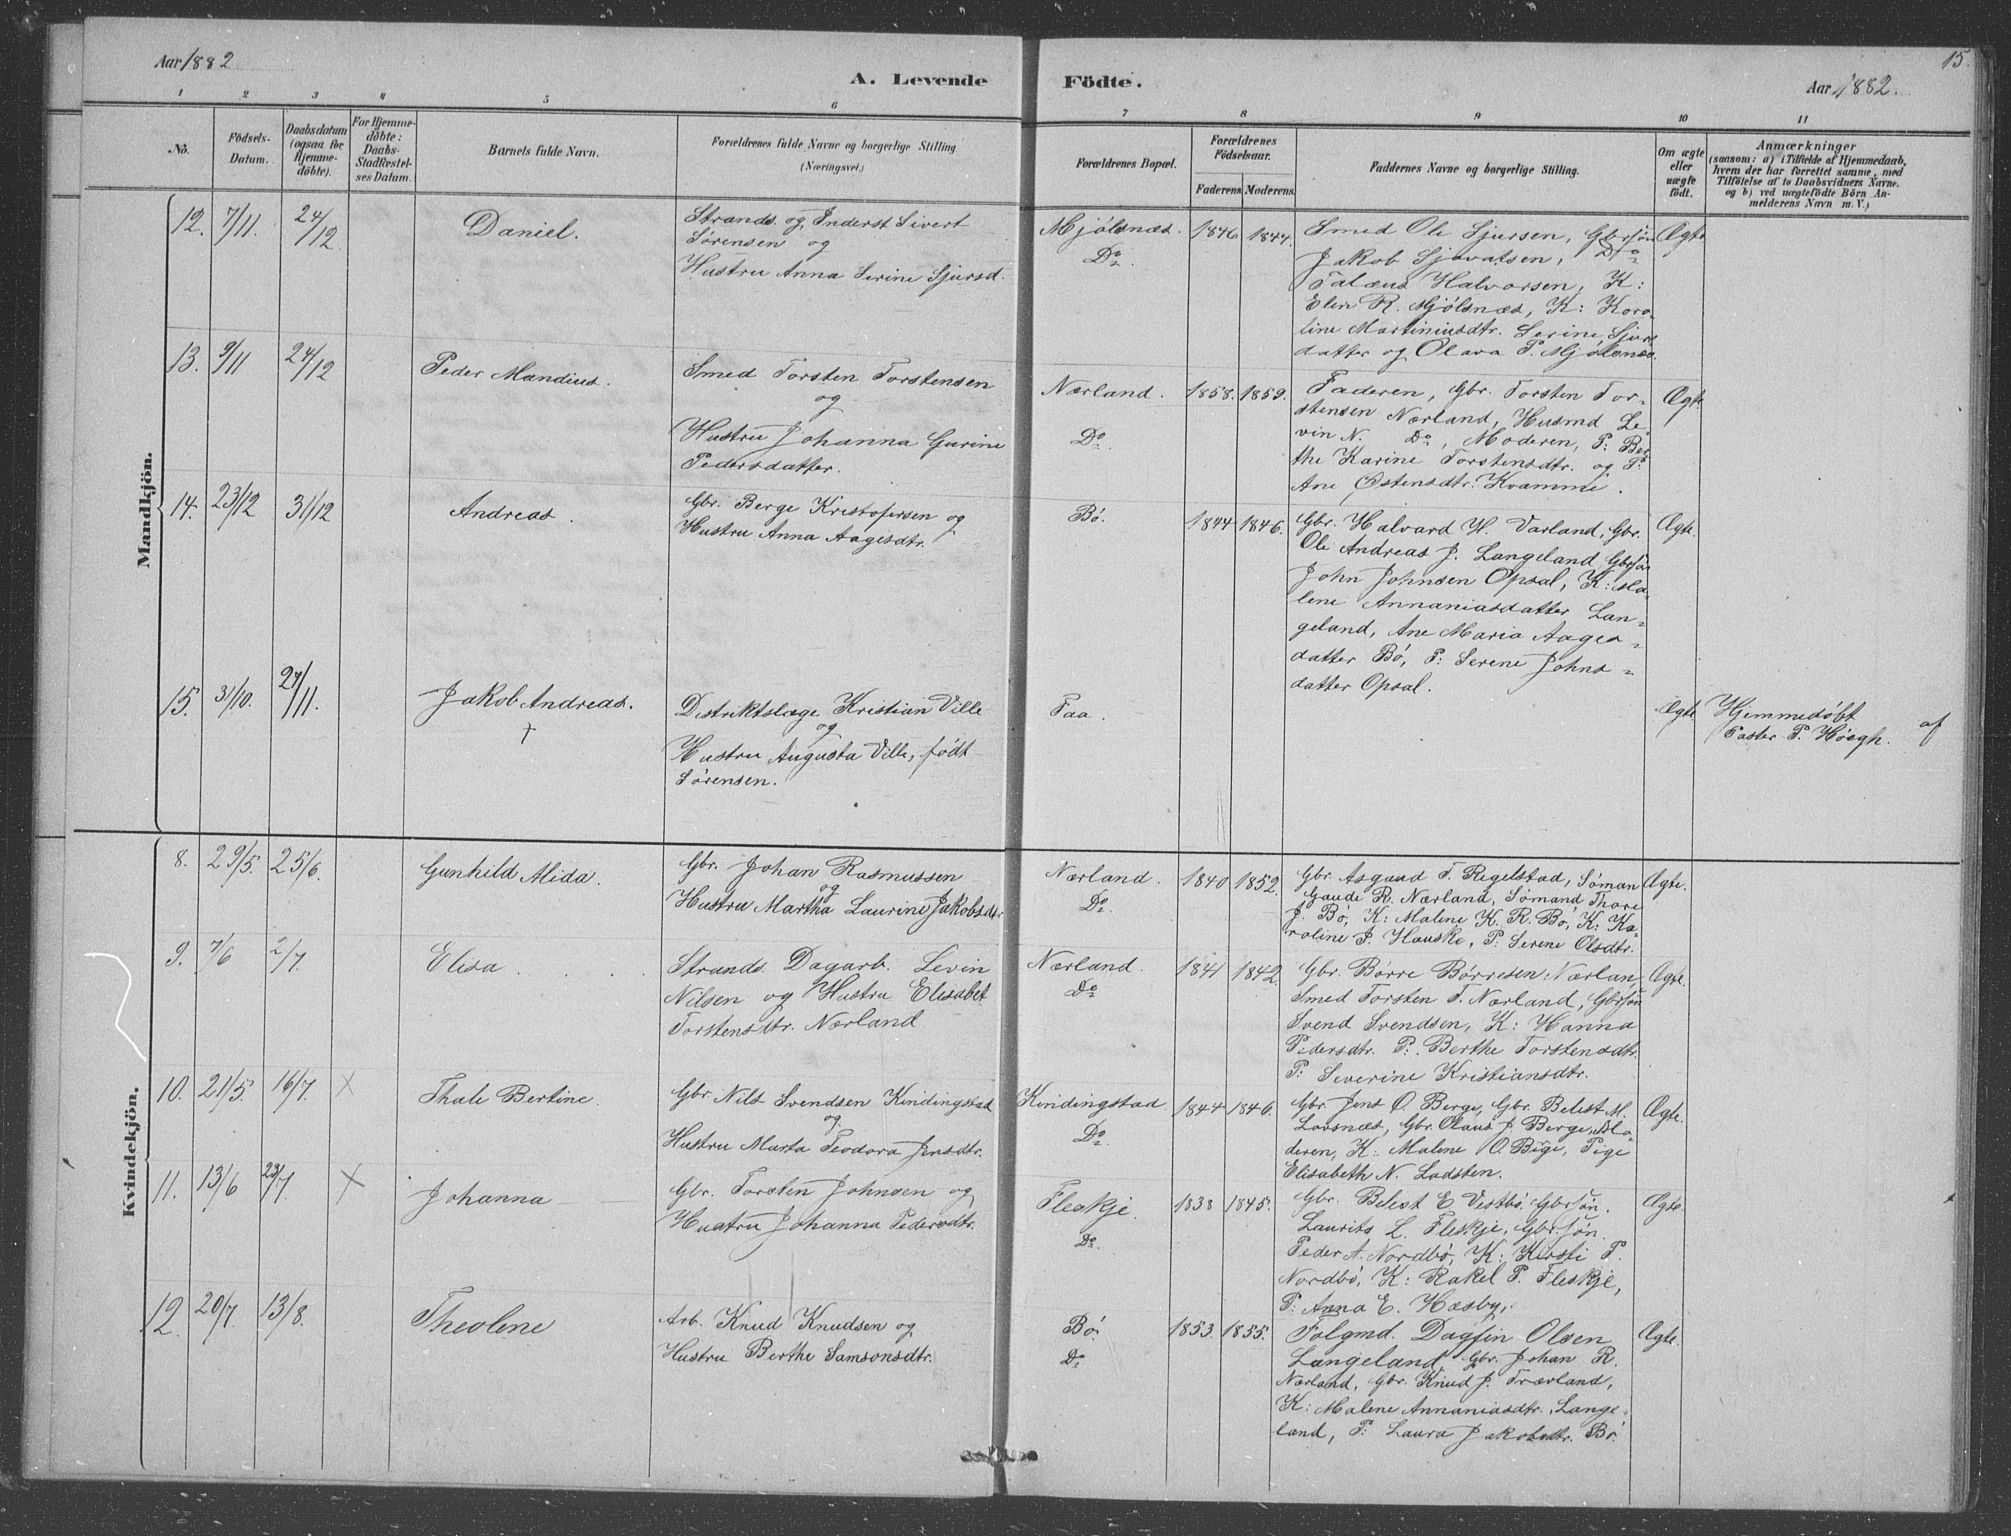 Aar 1882
A. Levende
Födte.
Aar 1882.
15.
1 2 3 4 5 6 7 8 9 10 11
No.
Födsels-
Datum.
Daabsdatum
(ogsaa for
Hjemme-
döbte).
For Hjemme-
döbte:
Daabs-
Stadfæstel-
ses Datum.
Barnets fulde Navn.
Forældrenes fulde Navne og borgerlige Stilling
(Næringsvei.)
Forældrenes Bopæl.
Forældrenes
Födselsaar.
Faderens. Moderens.
Faddernes Navne og borgerlige Stilling.
Om ægte
eller
uægte
födt.
Anmærkninger
(saasom: a) i Tilfælde af Hjemmedaab,
hvem der har forrettet samme, med
Tilföielse af to Daabsvidners Navne.
og b) ved uægtefödte Börn An-
melderens Navn m. V.)
Mandkjön.
12. 7/11. 24/12 Daniel.
Strands. og Inderst Sivert
Sørensen og
Hustru Anna Serine Sjursd.
Mjólsnæs. 1846 1844.
Do.
Smed Ole Sjursen, Gbrsøn
Jakob Do
Halvorsen, K:
Elen R. Mjólsnæs, K: Karo-
line Martiniusdtr. Serine Sjurs
datter og Olava T. Mjólsnæs.
Ægte
13. 9/11 24/12 Peder Mandius.
Smed Torsten Torstensen
og
Hustru Johanna Gurine
Pedersdatter.
Nærland. 1858. 1859.
Do.
Faderen, Gbr. Torsten Tor-
stensen Nærland, Husmd Le-
vin N. Do., Moderen, P: Ber
the Karine Torstensdtr. og P:
Ane Østensdtr. Kvamme.
Ægte
14. 23/12 31/12 Andreas.
Gbr. Berge Kristofersen og
Hustru Anna Aagesdtr.
Bó. 1844 1846.
Gbr. Halvard H. Varland, Gbr.
Ole Andreas J. Langeland Gbrsøn
John Johnsen Opsal, K: Ma-
lene Annaniasdatter Lan-
geland, Ane Maria Aages-
datter Bó, P: Serene Johns-
datter Opsal.
Ægte.
15. 31/10. 27/11. Jakob Andreas.
+
Distriktslæge Kristian Ville
og
Hustru Augusta Ville, født
Sørensen.
Faa.
Ægte
Hjemmedøbt af
Pastor P. Høegh.
Kvindekjön.
8. 29/5. 25/6. Gunhild Alida.
Gbr. Johan Rasmussen
og
Hustru Martha Laurine Jakobsdtr
Nærland. 1840 1852.
Do.
Gbr Asgaud T. Regelstad, Sóman
Gaude R. Nærland, Sómand Thore
J. Bó, K: Malene K. R. Bó, K: Ka-
roline J. Hauske, P: Serene Olsdtr.
Ægte.
9. 7/6 2/7. Elisa
Strands. Dagarb. Levin
Nilsen og Hustru Elisabet
Torstensdtr. Nærland
Nærland. 1841 1842.
Do
Gbr. Børre Børresen Nærlan,
Smed Torsten T. Nærland, Gbrsøn
Svend Svendsen, K: Hanna
Pedersdtr. P: Berthe Torstensdtr.
P: Severine Kristiansdtr.
Ægte.
10. 21/5. 16/7. × Thale Bertine.
Gbr. Nils Svendsen Kindingstad
og
Hustru Marta Teodora Jensdtr.
Kindingstad 1844 1846.
Do
Gbr Jens O. Berge, Gbr. Belest M.
Lovsnæs, Gbr. Olaus J. Berge, Mo-
deren, K: Malene O. Bige, Pige
Elisabeth N. Ladsten.
Ægte.
11. 13/6 23/7. × Johanna
Gbr. Torsten Johnsen og
Hustru Johanna Pedersdtr.
Fleskje. 1838 1845.
Do.
Gbr. Belest E. Vestbó. Gbrsøn.
Laurits L. Fleskje, Gbrsøn.
Peder A. Nordbó, K: Kirsti P.
Nordbó, K: Rakel P. Fleskje,
P: Anna E. Hæsby.
Ægte.
12. 20/7. 13/8. Theolene
Arb. Knud Knudsen og
Hustru Berthe Samsonsdtr.
Bó. 1853. 1855.
Do
Folgmd. Dagfin Olsen
Langeland, Gbr. Johan R.
Nærland, Gbr. Knud J. Trærland,
K: Malene Annaniasdtr. Lange-
land, P: Laura Jakobsdtr. Bó.
Ægte.